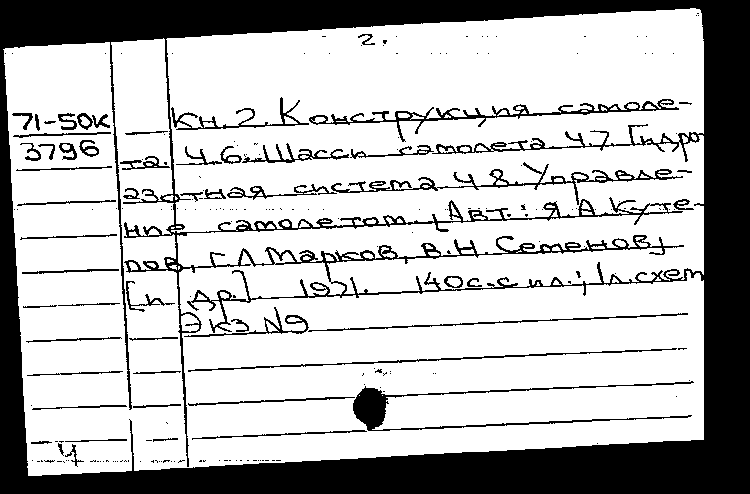 2.
71-50К Кн. 2. Конструкция самоле-
3796 та. Ч.6. Шасси самолета Ч.7. Гидро
азотная система Ч 8. Управле-
ние самолетом. [Авт.: Я.А. Куте-
пов, Г.Л. Марков, В.Н. Семенов]
[и др.]. 1971. 140с. с ил.; 1л. схем
Экз. N9
4